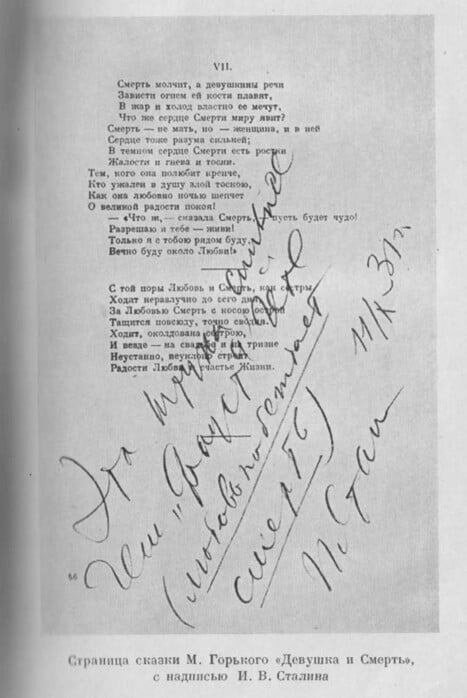 VII.
Смерть молчит, а девушкины речи
Зависти огнем ей кости плавят,
В жар и холод властно ее мечут,
Что же сердце Смерти миру явит?
Смерть — не мать, но — женщина, и в ней
Сердце тоже разума сильней;
В темном сердце Смерти есть ростки
Жалости и гнева и тоски.
Тем, кого она полюбит крепче,
Кто ужален в душу злой тоскою,
Как она любовно ночью шепчет
О великой радости покоя!
— «Что ж, — сказала Смерть, — пусть будет чудо!
Разрешаю я тебе — живи!
Только я с тобою рядом буду,
Вечно буду около Любви!»
С той поры Любовь и Смерть, как сестры,
Ходят неразлучно до сего дня,
За Любовью Смерть с косою острой
Тащится повсюду, точно сводня.
Ходит, околдована сестрою,
И везде — на свадьбе и на тризне
Неустанно, неуклонно строит
Радости Любви и счастье Жизни.
Эта штука сильнее
чем „Фауст" Гёте
(любовь побеждает
смерть)
И. Сталин
11/X–31г.
Страница сказки М. Горького «Девушка и Смерть»,
с надписью И. В. Сталина